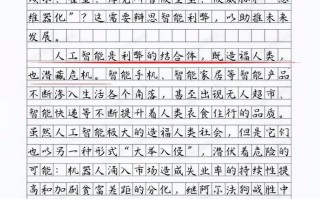 维器化"?这需要辩思智能利弊,以助推未来
发展。
人工智能是利弊的结合体,既造福人类,
也潜藏危机。智能手机、智能家居等智能产品
不断渗入生活各个角落,甚至出现无人超市、
智能快递等不断提升着人类衣食住行的品质。
虽然人工智能极大的造福人类社会,但是它们
也以另一种形式"大举入侵",潜伏着危险的
可能:机器人涌入市场造成失业率的持续性提
高和加剧贫富差距的分化,继阿尔法狗战胜中